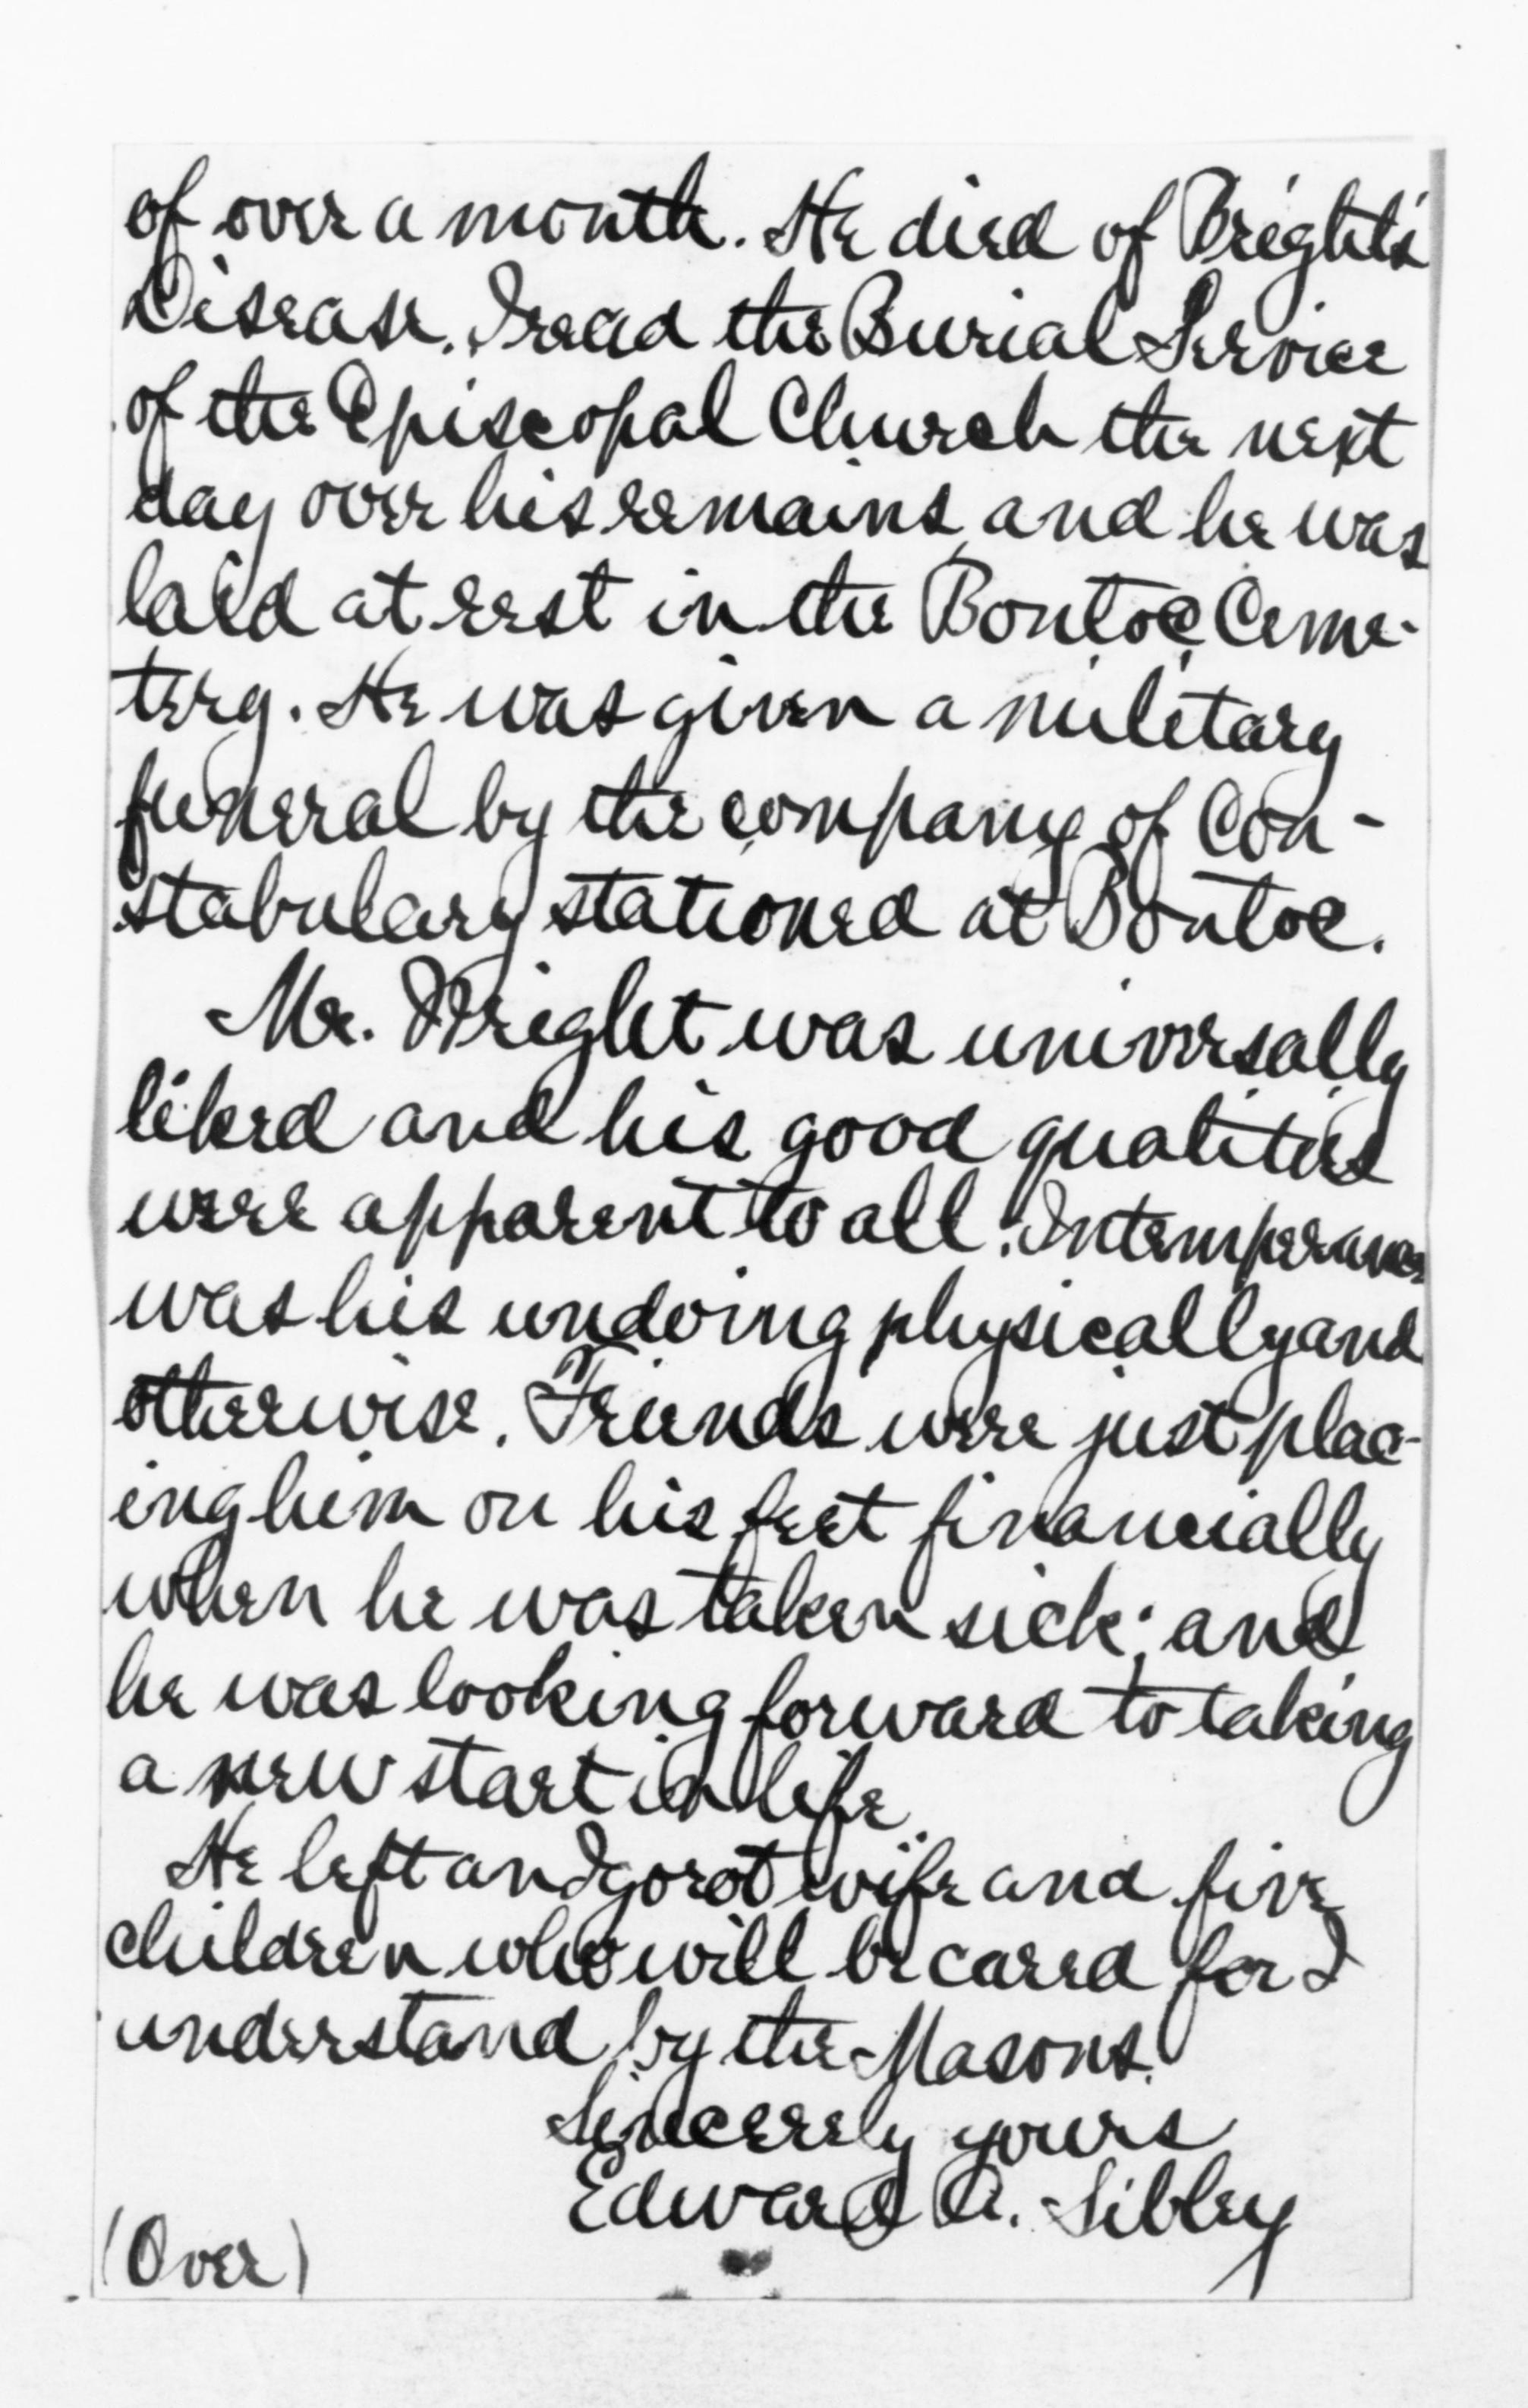 of over a month. He died of Bright's
Disease. I read the Burial Service
of the Episcopal Church the next
day over his remains and he was
laid at rest in the Bontoc Ceme-
tery. He was given a military
funeral by the company of Con-
stabulary stationed at Bontoc.
Mr. Wright was universally
liked and his good qualities
were apparent to all. Intemperance
was his undoing physically and
otherwise. Friends were just plac-
ing him on his feet financially
when he was taken sick; and
he was looking forward to taking
a new start in life.
He left an Igorot wife and five
children who will be cared for I
understand by the Masons.
Sincerely yours
Edward A. Sibley
(Over)